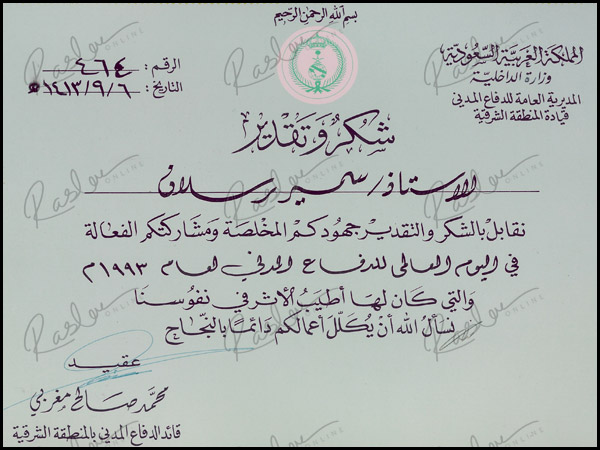 بسم الله الرحمن الرحيم
المملكة العربية السعودية
وزارة الداخلية
المديرية العامة للدفاع المدني
قيادة المنطقة الشرقية
الرقم : ٤٦٤
التاريخ : ١٤١٣/٩/٦هـ
شكر وتقدير
الاستاذ / سمير رسلان
نقابل بالشكر والتقدير جهودكم المخلصة ومشاركتكم الفعالة
في اليوم العالمي للدفاع المدني لعام ١٩٩٣م
والتي كان لها أطيب الأثر في نفوسنا
نسأل الله أن يكلل أعمالكم دائمًا بالنجاح
عقيد
محمد صالح مغربي
قائد الدفاع المدني بالمنطقة الشرقية
Raslan
ONLINE